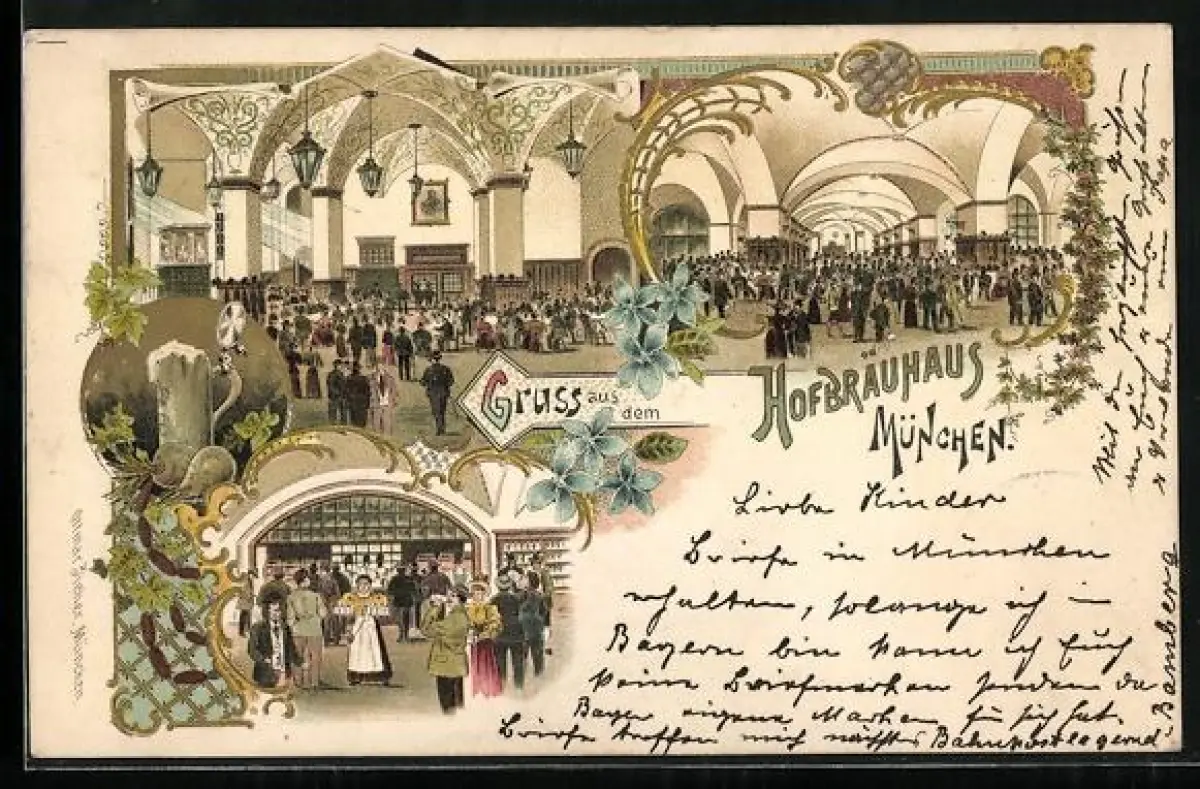 Gruss aus dem
HOFBRÄUHAUS
MÜNCHEN.
Liebe Kinder
Briefe in München
erhalten, solange ich in
Bayern bin kann ich Euch
keine Briefmarken senden da
Bayer eigene Marken für sich hat.
Briefe treffen mich nächstes Bahnpostlagernd
Bamberg
Mit den
Papa